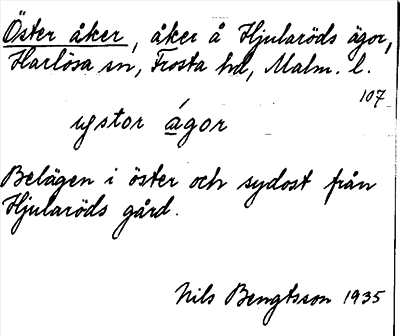 Öster åker, åker å Hjularöds ägor,
Harlösa sn, Frosta hd, Malm. l.
107
ystor ágor
Belägen i öster och sydost från
Hjularöds gård.
Nils Bengtsson 1935